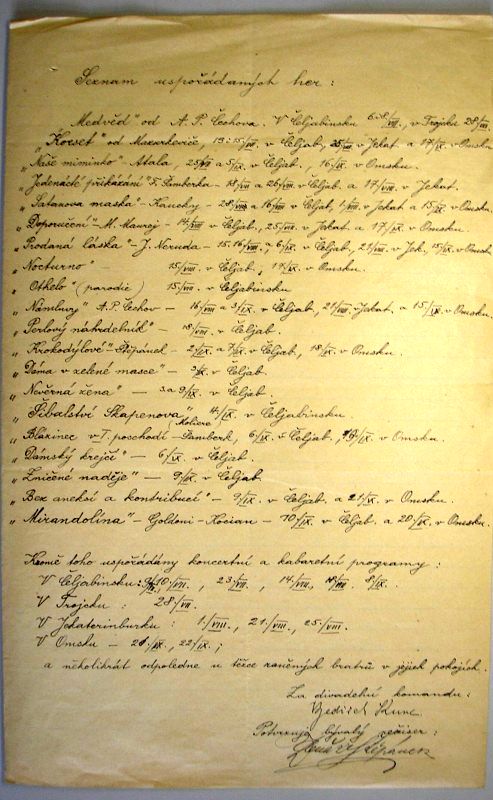 Seznam uspořádaných her:
„Medvěd" od A. P. Čechova. V Čeljabinsku 6. a 8/VII., v Trojsku 28/VII.
„Korset" od Mazurkeviče, 13. i 15/VII. v Čeljab., 25/VIII v Jekat. a 17/IX. v Omsku
„Naše miminko" - Atala, v Čeljab., 16/IX. v Omsku.
„Jedenácté přikázání" F. Šamberka - 18/VII a 26/VIII. v Čeljab. a 17/VIII. v Jekat.
„Satanova maska" - 28/VIII a 16/VIII v Čeljab., 1/VIII. v Jekat. a 15/IX. v Omsku
„Doporučení" - M. Maurej - 14/VIII v Čeljab., 25/VIII. v Jekat. a 17/IX. v Omsku.
„Prodaná láska" - J. Neruda - 15. 16/VIII. a 6/IX. v Čeljab., 21/VIII. v Jek., 15/IX. v Omsku
„Nocturno - 15/VIII. v Čeljab., 17/IX. v Omsku.
„Othelo" (parodie) 15/VIII. v Čeljabinsku
„Námluvy" A. P. Čechov - 16/VIII a 3/IX. v Čeljab., 21/VIII. v Jekat. a 15/IX. v Omsku.
„Perlový náhrdelník" - 18/VIII. v Čeljab.
„Krokodýlové" - Štěpánek - 2/IX. a 7/IX. v Čeljab., 18/IX. v Omsku.
„Dáma v zelené masce" - 3/IX. v Čeljab.
„Nevěrná žena" - 3. a 9/IX. v Čeljab.
„Šibalství Skapenova" (Moliere 4/IX. v Čeljabinsku.
„Blázinec v I. poschodí - Šamberk, 6/IX. v Čeljab., v Omsku.
„Dámský krejčí" - 6/IX. v Čeljab.
„Zničené naděje" - 9/IX. v Čeljab.
„Bez aneksí a kontribucí" - 9/IX. v Čeljab. a 21/IX. v Omsku.
„Mirandolina" - Goldoni - Kocian - 10/IX. v Čeljab. a 20/IX. v Omsku.
Kromě toho uspořádány koncertní a kabaretní programy:
V Čeljabinsku: 23/VII., 14/VIII., 8/IX.
V Trojsku: 28/VII.
V Jekaterinburku: 1/VIII., 21/VIII., 25/VIII.
V Omsku - 22/IX.;
a několikrát odpoledne u těžce raněných bratrů v jejich pokojích.
Za divadelní komandu:
Bedřich
Potvrzuje bývalý režiser:
Štěpánek